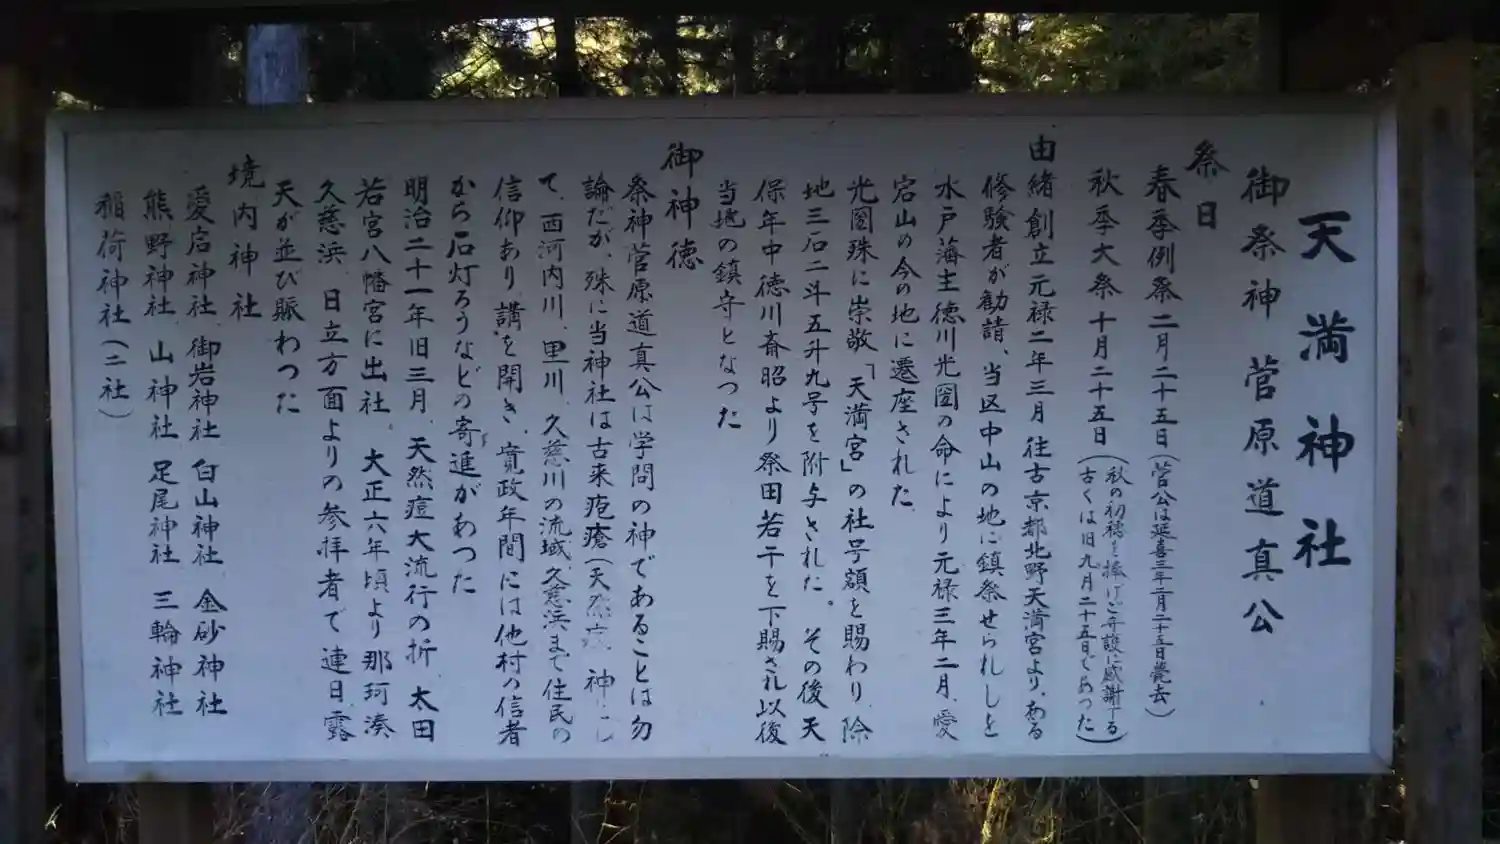 天満神社
御祭神 菅原道真公
祭日
春季例祭 二月二十五日(菅公は延喜三年二月二十五日薨去)
秋季大祭 十月二十五日(秋の初穂を捧げご守護に感謝する
古くは旧九月二十五日であった)
由緒創立元禄二年三月 往古京都北野天満宮より、ある
修験者が勧請、当区中山の地に鎮祭せられしを
水戸藩主徳川光圀の命により元禄三年二月、愛
宕山の今の地に遷座された。
光圀殊に崇敬「天満宮」の社号額を賜わり、除
地三石二斗五升九号を附与された。その後天
保年中徳川斎昭より祭田若干を下賜され以後
当地の鎮守となった
御神徳
祭神菅原道真公は学問の神であることは勿
論だが、殊に当神社は古来疱瘡(天然痘 神
て、西河内川、里川、久慈川の流域、久慈浜まで住民の
信仰あり、講を開き、寛政年間には他村の信者
から石灯ろうなどの寄進があった
明治二十一年旧三月、天然痘大流行の折、太田
若宮八幡宮に出社、大正六年頃より那珂湊
久慈浜、日立方面よりの参拝者で連日、露
天が並び賑わった
境内神社
愛宕神社、御岩神社、白山神社、金砂神社
熊野神社、山神社、足尾神社、三輪神社
稲荷神社(二社)